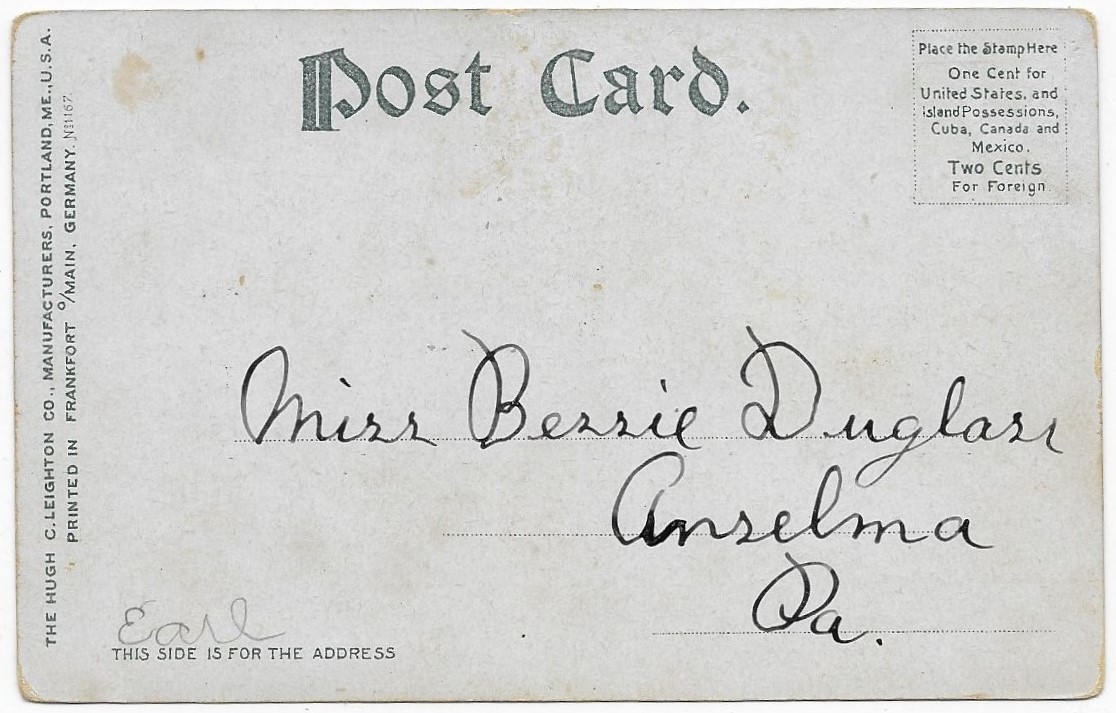 Post Card.
Place the Stamp Here
One Cent for
United States, and
Island Possessions,
Cuba, Canada and
Mexico.
Two Cents
For Foreign.
THE HUGH C. LEIGHTON CO., MANUFACTURERS, PORTLAND, ME., U.S.A.
PRINTED IN FRANKFORT O/MAIN, GERMANY. No 1167.
Miss Bessie Duglass
Anselma
Pa.
Earl
THIS SIDE IS FOR THE ADDRESS